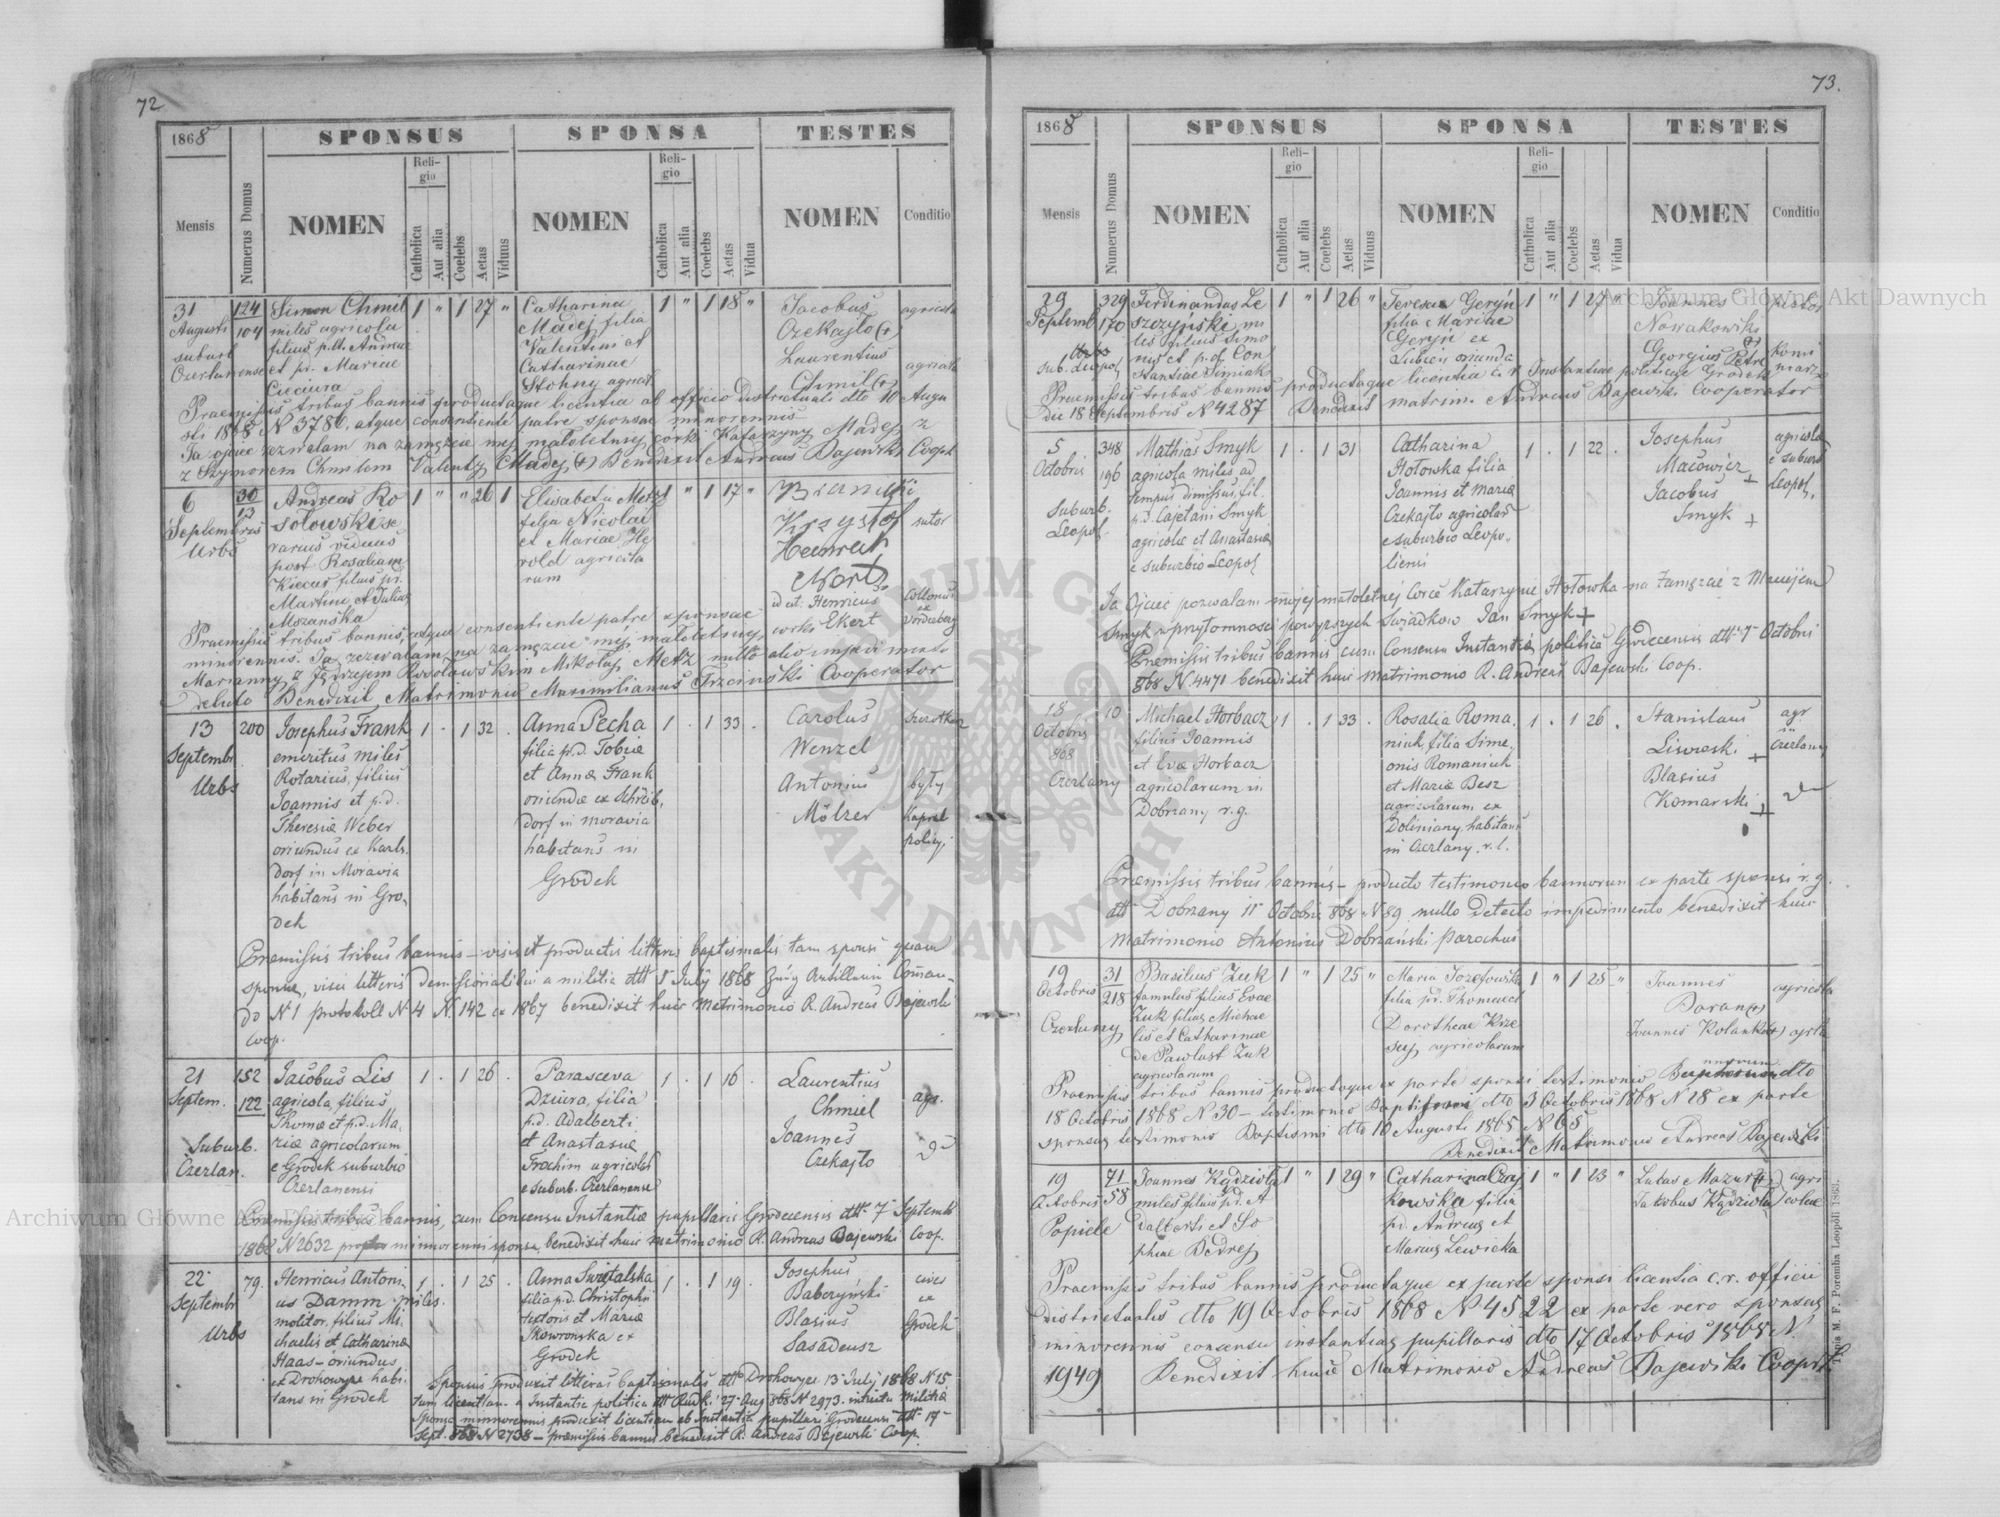 72
1868
SPONSUS
SPONSA
TESTES
Mensis
Numerus Domus
NOMEN
Religio
Catholica
Aut alia
Coelebs
Aetas
Viduus
NOMEN
Religio
Catholica
Aut alia
Coelebs
Aetas
Vidua
NOMEN
Conditio
31 Augusti suburb Czerlanense
124
104
Simon Chmil
miles agricola
filius p.m. Andreae
et p.d. Mariae
Cieciura
1 " 1 27 "
Catharina
Madej filia
Valentini et
Catharinae
Stohny agricol.
1 " 1 18 "
Jacobus
Czekajło (+)
Laurentius
Chmil (+)
agricola
agricola
Praemissis tribus bannis productaque licentia ab officio districtuali dto 10 Augu
sti 1868 N 3786, atque consentiente patre sponsae minorennis
Ja ojciec zezwalam na zamęzcie mej małoletniej córki Katarzyny Madej z
z Szymonem Chmilem Valenty Madej (+) Benedixit Andreas Bajewski Coop
6 Septembris Urbs
30
13
Andreas Ko
sołowski se
rarius viduus
post Rosaliam
Kiecur filius p.d.
Martini et Julia
Mszańska
1 " " 26 1
Elisabeta Metz
filja Nicolai
et Mariae He
rold agricola
rum
1 " 1 17 "
Kryszłof
Heinrich
id est Henricus
Ekert
sutor
Colonus
ex
Vorderberg
Praemissis tribus bannis, atque consentiente patre sponsae
minorennis. Ja zezwalam na zamęzcie mej małoletniej
Marianny z Jędrzejem Kosołowskim Mikołaj Metz nullo alio impedimento
detecto Benedixit Matrimonio Maximilianus Trzciński Cooperator
13 Septembr Urbs
200
Josephus Frank
emeritus miles
Rotarius, filius
Joannis et p.d.
Theresiae Weber
oriundus ex Karls
dorf in Moravia
habitans in Gro
dek
1 . 1 32 .
Anna Pecha
filia p.d. Tobiae
et Annae Frank
oriunda ex Schreib
dorf in Moravia
habitans in
Grodek
1 . 1 33 .
Carolus
Wenzel
Antonius
Mölzer
były
Kapral
policyj.
Praemissis tribus bannis – visis et productis litteris baptismalis tam sponsi quam
sponsae, visis litteris demissorialibus a militia dtt 8 July 1868 Zeug Artillerie Comman-
do N 1 protokoll N 4 N. 142 ex 1867 benedixit huic matrimonio R. Andreas Bajewski
Coop.
21 Septem. Suburb. Czerlan.
152
122
Jacobus Lis
agricola, filius
Thomae et p.d. Ma.
riae agricolarum
e Grodek suburbio
Czerlanensi
1 . 1 26 .
Parasceva
Dziura, filia
p.d. Adalberti
et Anastasiae
Trochim agricolar
e suburb. Czerlanense
1 . 1 16 .
Laurentius
Chmiel
Joannes
Czekajło
agr.
Praemissis tribus bannis, cum Consensu Instantiae pupillaris Grodecensis dtt 7 Septemb
1868 N 2632 minorennis sponsae, benedixit huic matrimonio R. Andreas Bajewski Coop.
22 Septembr Urbs
79.
Henricus Antoni
us Damm miles
molitor, filius Mi
chaelis et Catharinae
Haas – oriundus
ex Drohowyze habi
tans in Grodek
1 . 1 25 .
Anna Świętalska
filia p.d. Christophi
textoris et Mariae
Skowronska ex
Grodek
1 . 1 19 .
Josephus
Baberzyński
Blasius
Sasadeusz
cives
ex
Grodek
Sponsus produxit litteras baptismales dtt Drohowyze 13 July 1868 N 15
tum licentiam a Instantia politica dtt Rudki 27 Aug 868 N 2973. intuitu militiae
Sponsa minorennis produxit licentiam ab Instantia pupillari Grodecensi dtt 17
Sept. 868 N 2738 – praemissis bannis benedixit R. Andreas Bajewski Coop.
73.
1868
SPONSUS
SPONSA
TESTES
Mensis
Numerus Domus
NOMEN
Religio
Catholica
Aut alia
Coelebs
Aetas
Viduus
NOMEN
Religio
Catholica
Aut alia
Coelebs
Aetas
Vidua
NOMEN
Conditio
29 Septemb sub. Leopol
329
170
Ferdinandus Le
szczyński mi
les filius Simo
nis et p.d. Con
stantiae Simiak
1 " 1 26 "
Teresa Geryń
filia Mariae
Geryń ex
Lubień oriunda
1 " 1 27 "
Joannes
Nowakowski
Georgius Petre
pistor
komi
niarz
Praemissis tribus bannis productaque licentia c. r. Instantiae politicae Grodek
die 18 Septembris N 4287 Benedixit matrim. Andreas Bajewski Cooperator
5 Octobris Suburb. Leopol
348
196
Mathias Smyk
agricola miles ad
tempus dimissus, fil.
p.d. Cajetani Smyk
agricolae et Anastasiae
e suburbio Leopol
1 . 1 31
Catharina
Hołowka filia
Joannis et Mariae
Czekajło agricolar
e suburbio Leopo-
liensi
1 . 1 22 .
Josephus
Macowicz +
Jacobus
Smyk +
agricolae
e suburb
Leopol.
Ja Ojciec pozwalam mojej małoletniej Córce Katarzynie Hołowka na Zamęzcie z Maciejem
Smyk w przytomności powyzszych Świadkow Jan Smyk +
Praemissis tribus bannis cum Consensu Instantiae politicae Grodecensis dtt 5 Octobris
868 N 4471 benedixit huic matrimonio R. Andreas Bajewski Coop.
18 Octobris 868 Czerlany
10
Michael Horbacz
filius Joannis
et Evae Horbacz
agricolarum in
Dobrzany r.g.
1 . 1 33 .
Rosalia Roma
niuk, filia Sime
onis Romaniuk
et Mariae Besz
agricolarum ex
Doliniany, habitans
in Czerlany. r.l.
1 . 1 26 .
Stanislaus
Liwreski +
Blasius
Komarski +
agr.
in
Czerlany
Praemissis tribus bannis – producto testimonio bannorum ex parte sponsi r.g.
dtt Dobrzany 11 Octobris 868 N 89 nullo detecto impedimento benedixit huic
matrimonio Antonius Dobrzański Parochus
19 Octobris Czerlany
31
218
Basilius Zuk
famulus filius Evae
Zuk filiae Michae
lis et Catharinae
de Pawlust Zuk
agricolarum
1 " 1 25 "
Maria Jozefowska
filia p.d. Thomae et
Dorotheae Krze
sej agricolarum
1 " 1 25 "
Joannes
Baran (+)
Joannes Kolanko (+)
agricola
agrla
Praemissis tribus bannis productaque ex parte sponsi testimonio bannorum dto
18 Octobris 1868 N 30 – testimonio Baptismi dto 3 Octobris 1868 N 28 ex parte
sponsae testimonio Baptismi dto 10 Augusti 1865 N 65
Benedixit Matrimonio Andreas Bajewski
19 Octobris Popiele
71
58
Joannes Kądzioła
miles filius p.d. A
dalberti et So
phiae Bedrej
1 " 1 29 "
Catharina Czaj
kowska filia
p.d. Andreae et
Mariae Lewicka
1 " 1 23 "
Lucas Mazur (+)
Jakobus Kądzioła
agri
colae
Praemissis tribus bannis productaque ex parte sponsi licentia c.r. officii
districtualis dto 19 Octobris 1868 N 4522 ex parte vero sponsae
minorennis consensu instantiae pupillaris dto 17 Octobris 1868 N.
1949 Benedixit huic Matrimonio Andreas Bajewski Coop.
Typis M. F. Poremba Leopoli
Archiwum Główne Akt Dawnych
Archiwum Główne Akt Dawnych
ARCHIWUM GŁÓWNE AKT DAWNYCH